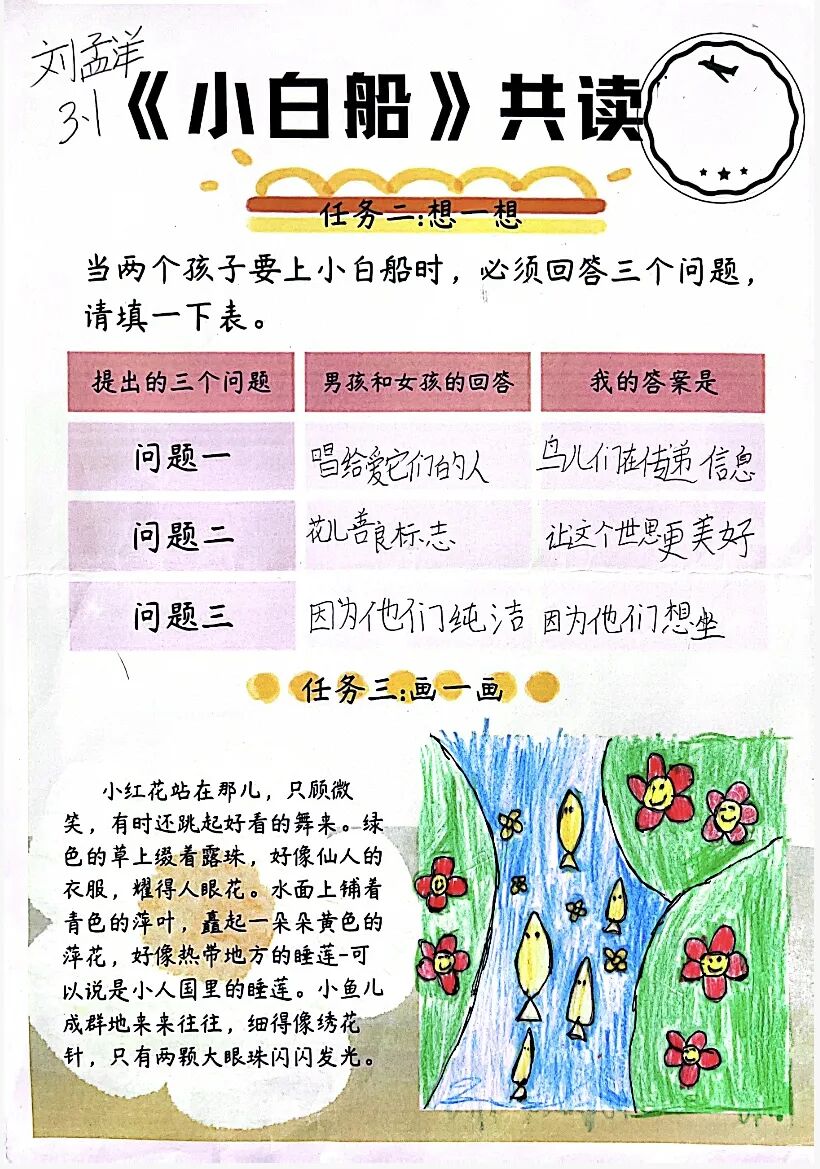 刘孟洋
3.1
《小白船》共读
任务二:想一想
当两个孩子要上小白船时，必须回答三个问题，
请填一下表。
提出的三个问题 男孩和女孩的回答 我的答案是
问题一 唱给爱它们的人 鸟儿们在传递信息
问题二 花儿善良标志 让这个世界更美好
问题三 因为他们纯洁 因为他们想坐
任务三:画一画
小红花站在那儿，只顾微
笑，有时还跳起好看的舞来。绿
色的草上缀着露珠，好像仙人的
衣服，耀得人眼花。水面上铺着
青色的萍叶，矗起一朵朵黄色的
萍花，好像热带地方的睡莲-可
以说是小人国里的睡莲。小鱼儿
成群地来来往往，细得像绣花
针，只有两颗大眼珠闪闪发光。